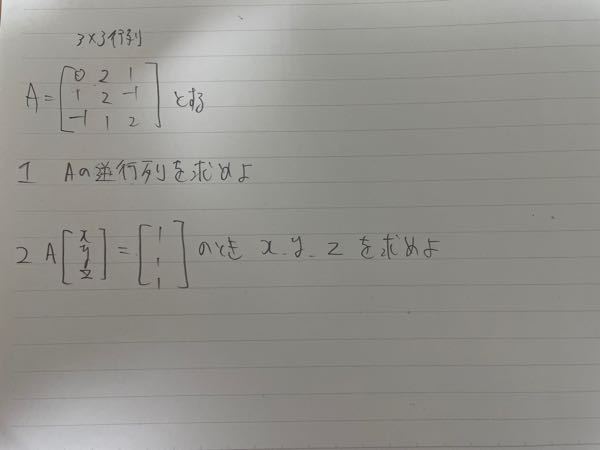 3×3行列
A = [0 2 1
1 2 -1
-1 1 2] とする
1 Aの逆行列を求めよ
2 A[x
y
z] = [1
1
1] のとき x, y, z を求めよ